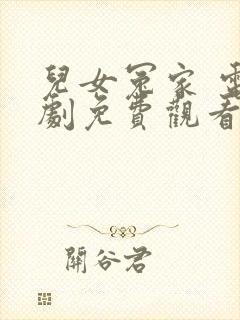 兒女冤家 電
劇免費觀看
關谷君